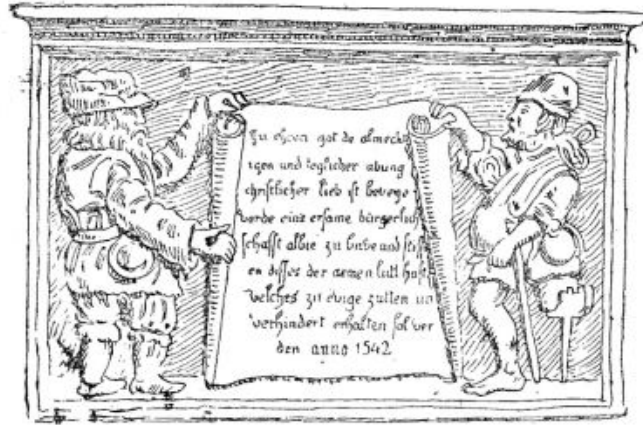 Zu ehren got de almecht
igen und teglicher abung
christlicher lieb ist bewege
worde eine ersame bürgerlich
schafft alhie zu buwe und stift
en disses der armen lutt huß
welches zu ewige zitten un
verhindert erhalten sol wer
den anno 1542